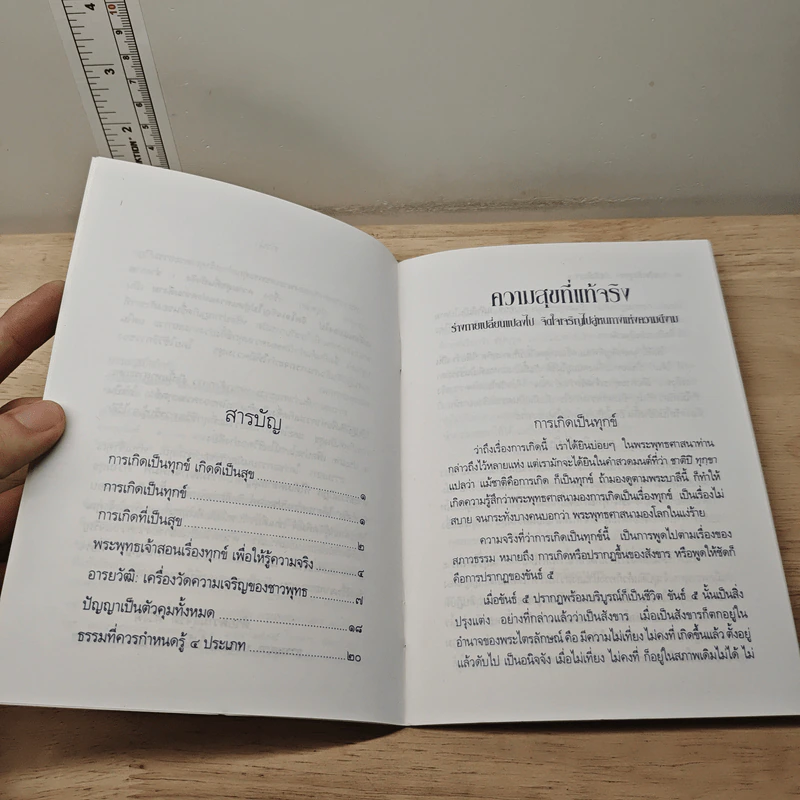 สารบัญ
การเกิดเป็นทุกข์ เกิดดีเป็นสุข ๑
การเกิดเป็นทุกข์ ๑
การเกิดที่เป็นสุข ๒
พระพุทธเจ้าสอนเรื่องทุกข์ เพื่อให้รู้ความจริง ๔
อารยวัฒิ: เครื่องวัดความเจริญของชาวพุทธ ๗
ปัญญาเป็นตัวคุมทั้งหมด ๑๘
ธรรมที่ควรกำหนดรู้ ๔ ประเภท ๒๐
ความสุขที่แท้จริง
ร่างกายเปลี่ยนแปลงไป จิตใจเจริญไปสู่หนทางแห่งความดีงาม
การเกิดเป็นทุกข์
ว่าถึงเรื่องการเกิดนี้ เราได้ยินบ่อยๆ ในพระพุทธศาสนาท่าน
กล่าวถึงไว้หลายแห่ง แต่เรามักจะได้ยินในคำสวดมนต์ที่ว่า ชาติปิ ทุกฺขา
แปลว่า แม้ชาติคือการเกิด ก็เป็นทุกข์ ถ้ามองดูตามพระบาลีนี้ ก็ทำให้
เกิดความรู้สึกว่าพระพุทธศาสนามองการเกิดเป็นเรื่องทุกข์ เป็นเรื่องไม่
สบาย จนกระทั่งบางคนบอกว่า พระพุทธศาสนามองโลกในแง่ร้าย
ความจริงที่ว่าการเกิดเป็นทุกข์นี้ เป็นการพูดไปตามเรื่องของ
สภาวธรรม หมายถึง การเกิดหรือปรากฏขึ้นของสังขาร หรือพูดให้ชัดก็
คือการปรากฏของขันธ์ ๕
เมื่อขันธ์ ๕ ปรากฏพร้อมบริบูรณ์ก็เป็นชีวิต ขันธ์ ๕ นั้นเป็นสิ่ง
ปรุงแต่ง อย่างที่กล่าวแล้วว่าเป็นสังขาร เมื่อเป็นสังขารก็ตกอยู่ใน
อำนาจของพระไตรลักษณ์ คือ มีความไม่เที่ยง ไม่คงที่ เกิดขึ้นแล้ว ตั้งอยู่
แล้วดับไป เป็นอนิจจัง เมื่อไม่เที่ยง ไม่คงที่ ก็อยู่ในสภาพเดิมไม่ได้ ไม่